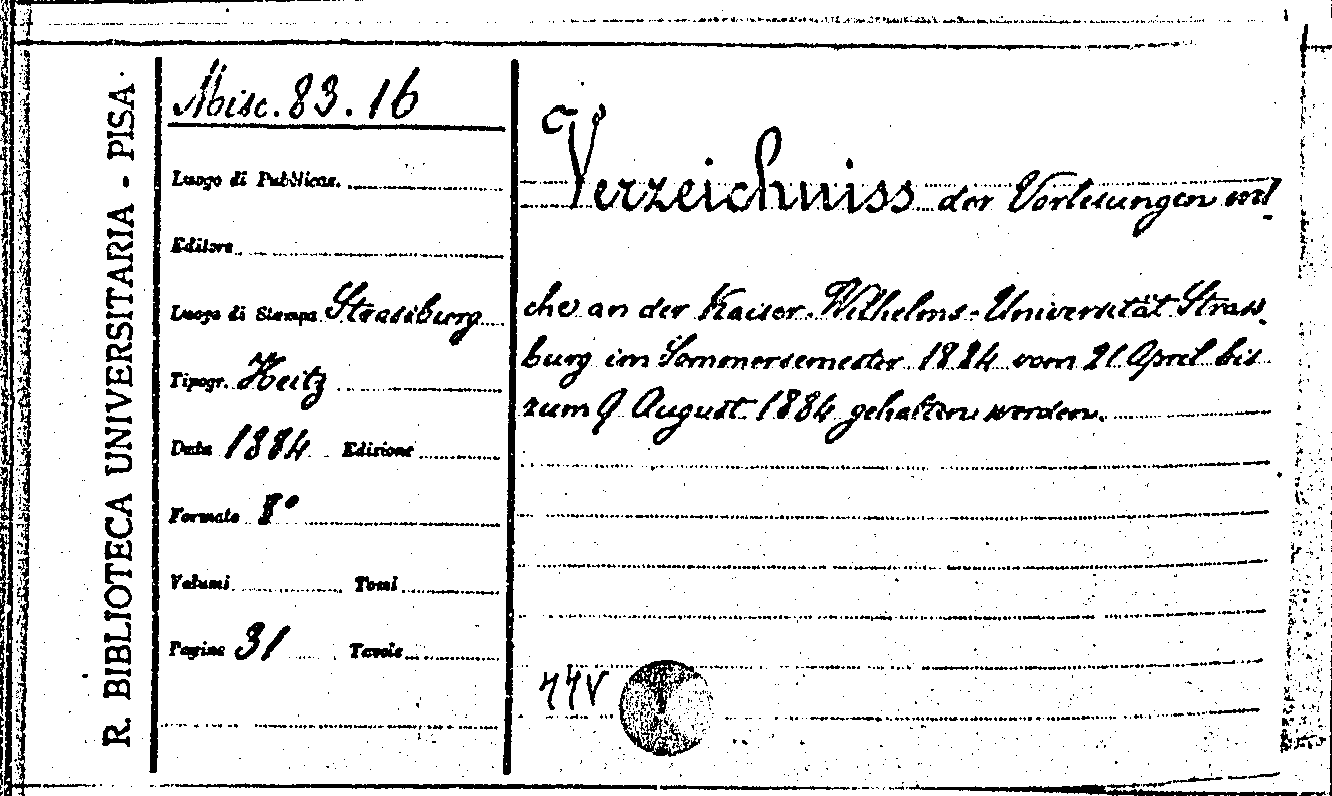 R. BIBLIOTECA UNIVERSITARIA - PISA
Misc. 83. 16
Luogo di Pubblicaz.
Editore
Luogo di Stampa Strassburg
Tipogr. Heitz
Data 1884 Edizione
Formato 8°
Volumi Tomi
Pagine 31 Tavole
Verzeichniss der Vorlesungen wel-
che an der Kaiser-Wilhelms-Universität Strass-
burg im Sommersemester 1884 vom 21 April bis
zum 9 August 1884 gehalten werden.